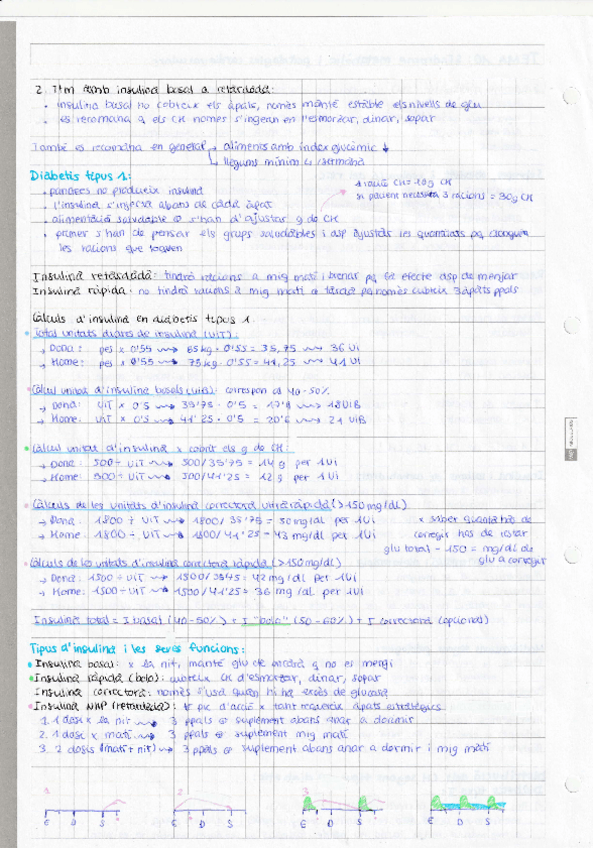 2. Ttm amb insulina basal o retardada:
• insulina basal no cobreix els àpats, només manté estable els nivells de glu
• es recomana q els CH només s'ingeran en l'esmorzar, dinar, sopar
També es recomana en general → aliments amb index glucèmic ↓
↳ lleguns mínim 4/setmana
Diabetis tipus 1:
• pancrees no produeix insulina
• l'insulina s'injecta abans de cada àpat
• alimentació saludable ⊕ s'han d'ajustar g de CH
• primer s'han de pensar els grups saludables i dsp ajustar les quantitats pq
les racions que toquen
1 ració CH = 10g CH
si pacient necessita 3 racions = 30g CH
Insulina retardada: tindrà racions a mig matí i berenar pq fa efecte dsp de menjar
Insulina ràpida: no tindrà racions a mig matí o tarda pq només cubreix 3 àpats ppals
Càlculs d'insulina en diabetis tipus 1.
Total unitats diàries de insulina (UIT):
→ Dona: pes x 0'55 ⟿ 65kg · 0'55 = 35,75 ⟿ 36 UI
→ Home: pes x 0'55 ⟿ 75kg · 0'55 = 41,25 ⟿ 41 UI
Càlcul unitat d'insulina basals (UIB): correspon al 40-50%
→ Dona: UIT x 0'5 ⟿ 35'75 · 0'5 = 17'8 ⟿ 18 UIB
→ Home: UIT x 0'5 ⟿ 41'25 · 0'5 = 20'6 ⟿ 21 UIB
Càlcul unitat d'insulina x cobrir els g de CH:
→ Dona: 500 ÷ UIT ⟿ 500/35'75 = 14 g per 1 UI
→ Home: 500 ÷ UIT ⟿ 500/41'25 = 12 g per 1 UI
Càlculs de les unitats d'insulina correctora ultraràpida (>150 mg/dL)
→ Dona: 1800 ÷ UIT ⟿ 1800/35'75 = 50 mg/dl per 1 UI
→ Home: 1800 ÷ UIT ⟿ 1800/41'25 = 43 mg/dl per 1 UI
x saber quanta has de
corregir has de restar
glu total - 150 = mg/dl de
glu a corregir
Càlculs de les unitats d'insulina correctora ràpida (>150 mg/dl)
→ Dona: 1500 ÷ UIT ⟿ 1500/35'75 = 42 mg/dl per 1 UI
→ Home: 1500 ÷ UIT ⟿ 1500/41'25 = 36 mg/dl per 1 UI
Insulina total = I basal (40-50%) + I "bolo" (50-60%) + I correctora (opcional)
Tipus d'insulina i les seves funcions:
• Insulina basal: x la nit, manté glu q no es mengi
• Insulina ràpida (bolo): cubreix CH d'esmorzar, dinar, sopar
Insulina correctora: només s'usa quan hi ha excés de glucosa
• Insulina NHP (retardada): té pic d'acció x tant requereix àpats estratègics
1. 1 dosi x la nit ⟿ 3 ppals ⊕ suplement abans anar a dormir
2. 1 dosi x matí ⟿ 3 ppals ⊕ suplement mig matí
3. 2 dosis (matí + nit) ⟿ 3 ppals ⊕ suplement abans anar a dormir i mig matí
1 2 3
E D S E D S E D S E D S